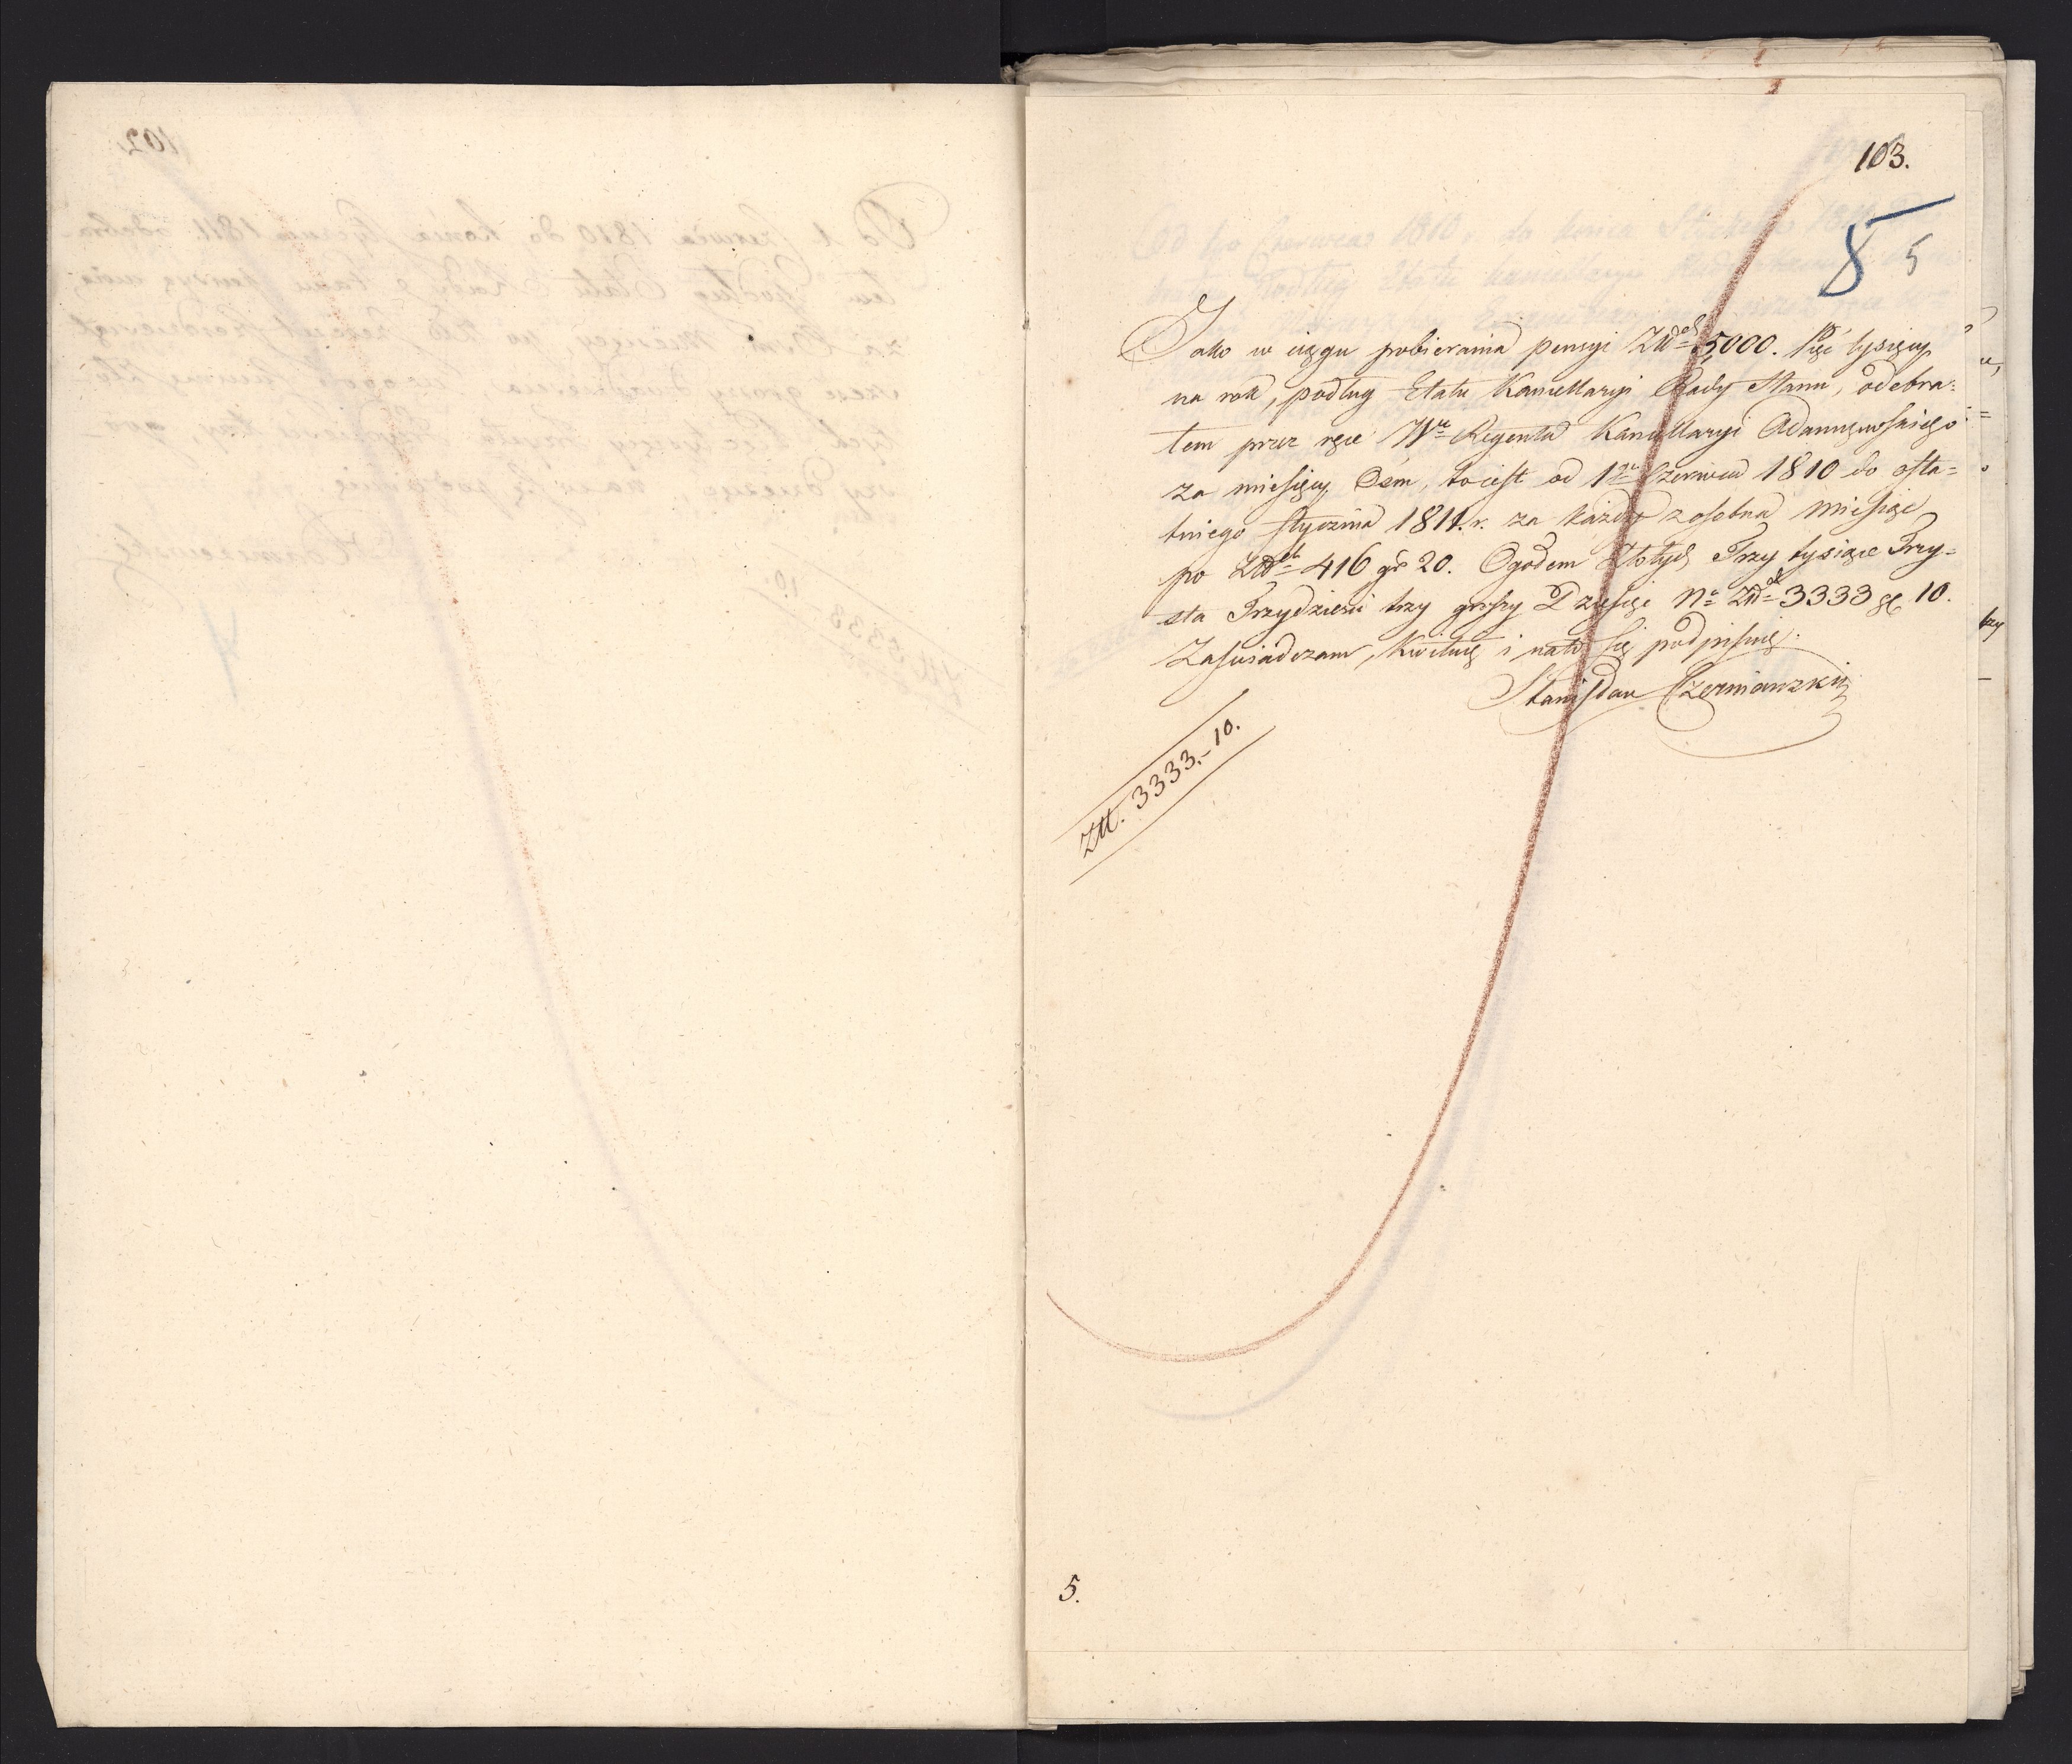 103.
8 5
Jako w ciągu pobierania pensyi Złłch 5000. Pięć tysięcy
na rok, podług Etatu Kancellaryi Rady Stanu, odebra:
łem przez ręce Wo Regenta Kancellaryi
za miesięcy Ośm, to iest od 1go Czerwca 1810 do osta=
tniego stycznia 1811. r. za każdy zosobna miesiąc
po Złłch 416 gr 20. Ogołem Złotych Trzy tysiące Trzy=
sta Trzydzieści trzy groszy Dziesięć No Złłch 3333 gr 10.
Zaświadczam, Kwituię i na to się podpisuię.
Stanisław Czerniawzki
Złł. 3333.- 10.
5.